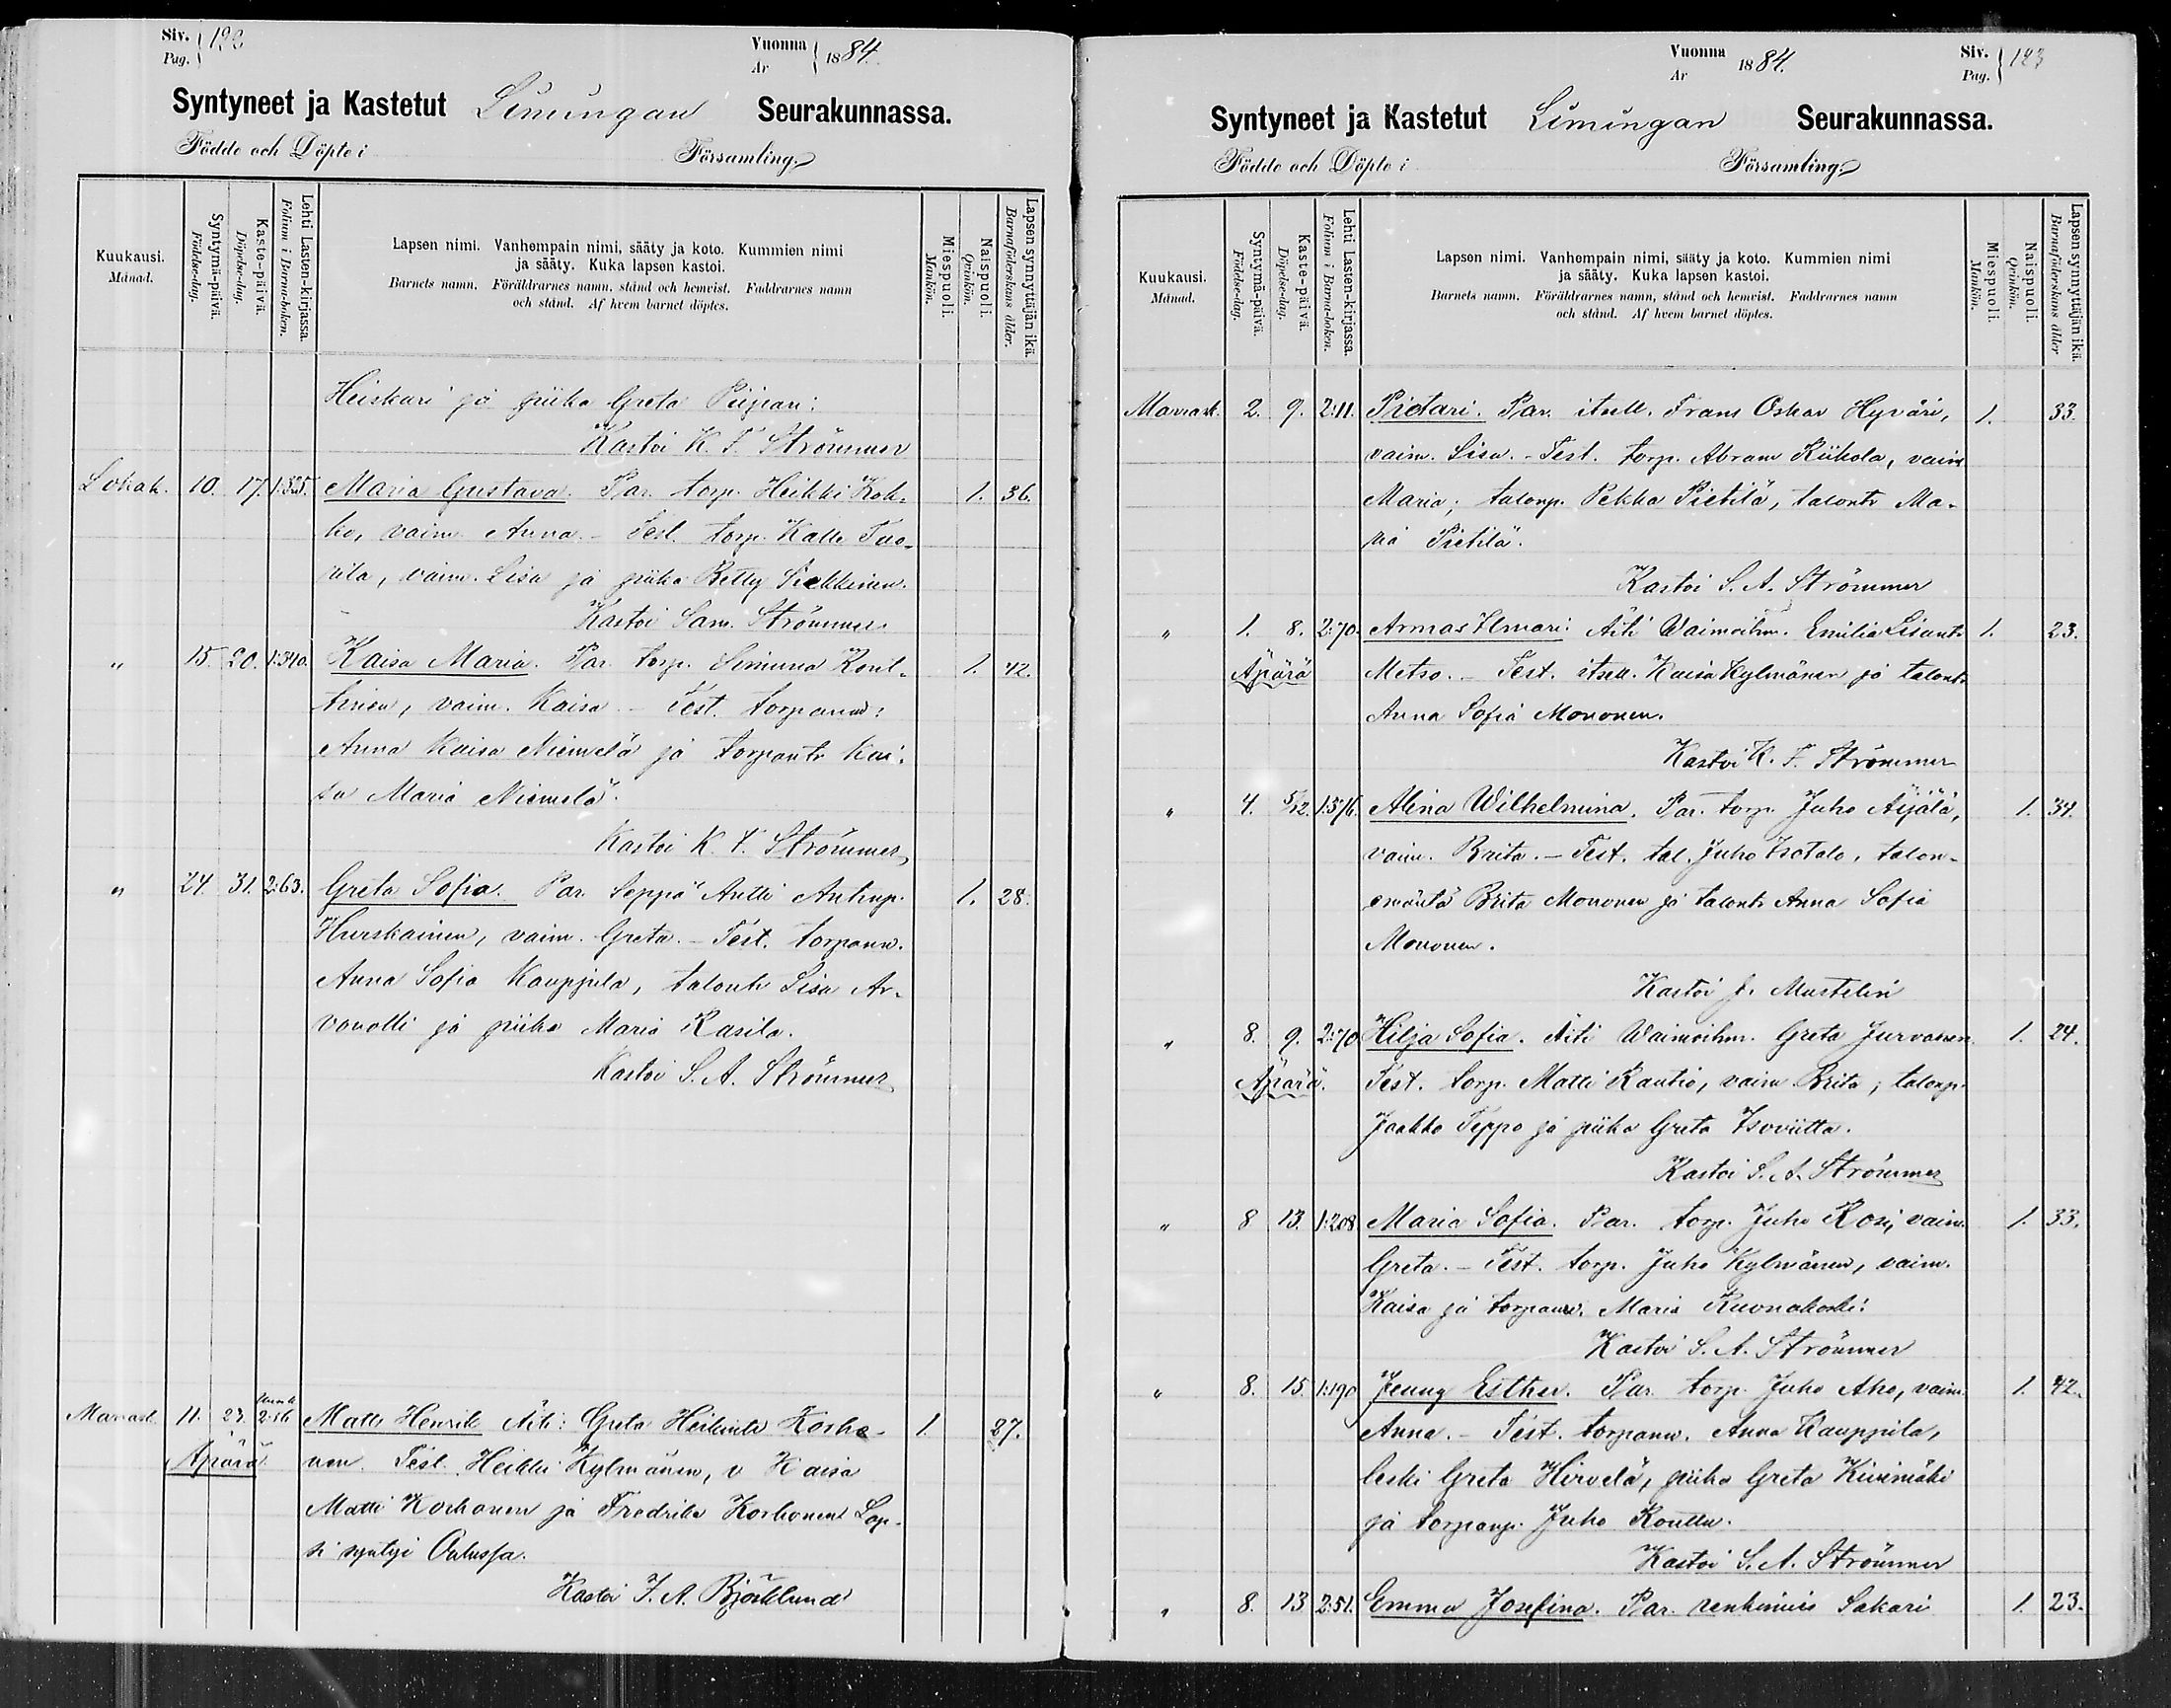 Siv. Pag. 122
Vuonna År 1884.
Syntyneet ja Kastetut Limingan Seurakunnassa.
Födde och Döpte i Församling.
Kuukausi. Månad.
Syntymä-päivä. Födelse-dag.
Kaste-päivä. Döpelse-dag.
Lehti Lasten-kirjassa. Folium i Barna-boken.
Lapsen nimi. Vanhempain nimi, sääty ja koto. Kummien nimi
ja sääty. Kuka lapsen kastoi.
Barnets namn. Föräldrarnes namn, stånd och hemvist. Faddrarnes namn
och stånd. Af hvem barnet döptes.
Miespuoli. Mankön.
Naispuoli. Qvinkön.
Lapsen synnyttäjän ikä. Barnaföderskans ålder.
Heiskari ja piika Greta Piipari.
Kastoi K. F. Strömmer
Lokak. 10. 17. Maria Gustava. Par. torp. Heikki Kok- 1. 36.
ko, vaim. Anna. - Test. torp. Kalle Tuo-
rila, vaim. Lisa ja piika Betty
Kastoi Sam. Strömmer
" 15. 20. 1:340. Kaisa Maria. Par. torp. Simuna Kont- 1. 42.
tinen, vaim. Kaisa - Test. torpanem:
Anna Kaisa Niemelä ja torpantr Kai-
sa Maria Niemelä.
Kastoi K. F. Strömmer
" 24. 31. 2:63. Greta Sofia. Par. Seppä Antti Antinp. 1. 28.
Hurskainen, vaim. Greta. - Test. torpanem.
Anna Sofia Kauppila, talontr Lisa Ar-
vonolli ja piika Maria Rasila.
Kastoi S. A. Strömmer
Marrask. 11. 23. 2:56 Matti Henrik Äiti: Greta Heikintr Korho- 1. 27.
Äpärä. nen. Test. Heikki Kylmänen, v Kaisa
Matti Korhonen ja Fredrika Korhonen Lap-
si syntyi Oulussa.
Kastoi J. A. Björklund
Vuonna År 1884.
Siv. Pag. 123
Syntyneet ja Kastetut Limingan Seurakunnassa.
Födde och Döpte i Församling.
Kuukausi. Månad.
Syntymä-päivä. Födelse-dag.
Kaste-päivä. Döpelse-dag.
Lehti Lasten-kirjassa. Folium i Barna-boken.
Lapsen nimi. Vanhempain nimi, sääty ja koto. Kummien nimi
ja sääty. Kuka lapsen kastoi.
Barnets namn. Föräldrarnes namn, stånd och hemvist. Faddrarnes namn
och stånd. Af hvem barnet döptes.
Miespuoli. Mankön.
Naispuoli. Qvinkön.
Lapsen synnyttäjän ikä. Barnaföderskans ålder
Marrask. 2. 9. 2:11. Pietari. Par. itsell. Frans Oskar Hyväri, 1. 33.
vaim. Lisa. - Test. torp. Abram Kiikola, vaim
Maria; talonp. Pekka Pietilä, talontr Ma-
ria Pietilä.
Kastoi S. A. Strömmer
" 1. 8. 2:70. Armas Ilmari. Äiti Waimoihm. Emilia Lisantr 1. 23.
Äpärä Metso. - Test. itsell. Kaisa Kylmänen ja talontr
Anna Sofia Mononen.
Kastoi K. F. Strömmer
" 4. 5/12. 1:376. Alina Wilhelmina. Par. torp. Juho Äijälä, 1. 34.
vaim. Brita. - Test. tal. Juho Isotalo, talon-
emäntä Brita Mononen ja talontr Anna Sofia
Mononen.
Kastoi J. Mustelin
" 8. 9. 2:70 Hilja Sofia. Äiti Waimoihm. Greta Jurvanen 1. 24.
Äpärä. Test. torp. Matti Rautio, vaim Brita; talonp.
Jaakko Teppo ja piika Greta Isoviitta.
Kastoi S. A. Strömmer
" 8 13. 1:208 Maria Sofia. Par. torp. Juho Kosi, vaim. 1. 33.
Greta. - Test. torp. Juho Kylmänen, vaim.
Kaisa ja torpanem. Maria Ruonakoski.
Kastoi S. A. Strömmer
" 8. 15. 1:190 Jenny Esther. Par. torp. Juho Aho, vaim. 1. 42.
Anna. - Test. torpanem. Anna Kauppila,
leski Greta Hirvelä, piika Greta Kivimäki
ja torpanp. Juho Konttu.
Kastoi S. A. Strömmer
" 8. 13 2:51. Emma Josefina. Par. renkimies Sakari 1. 23.